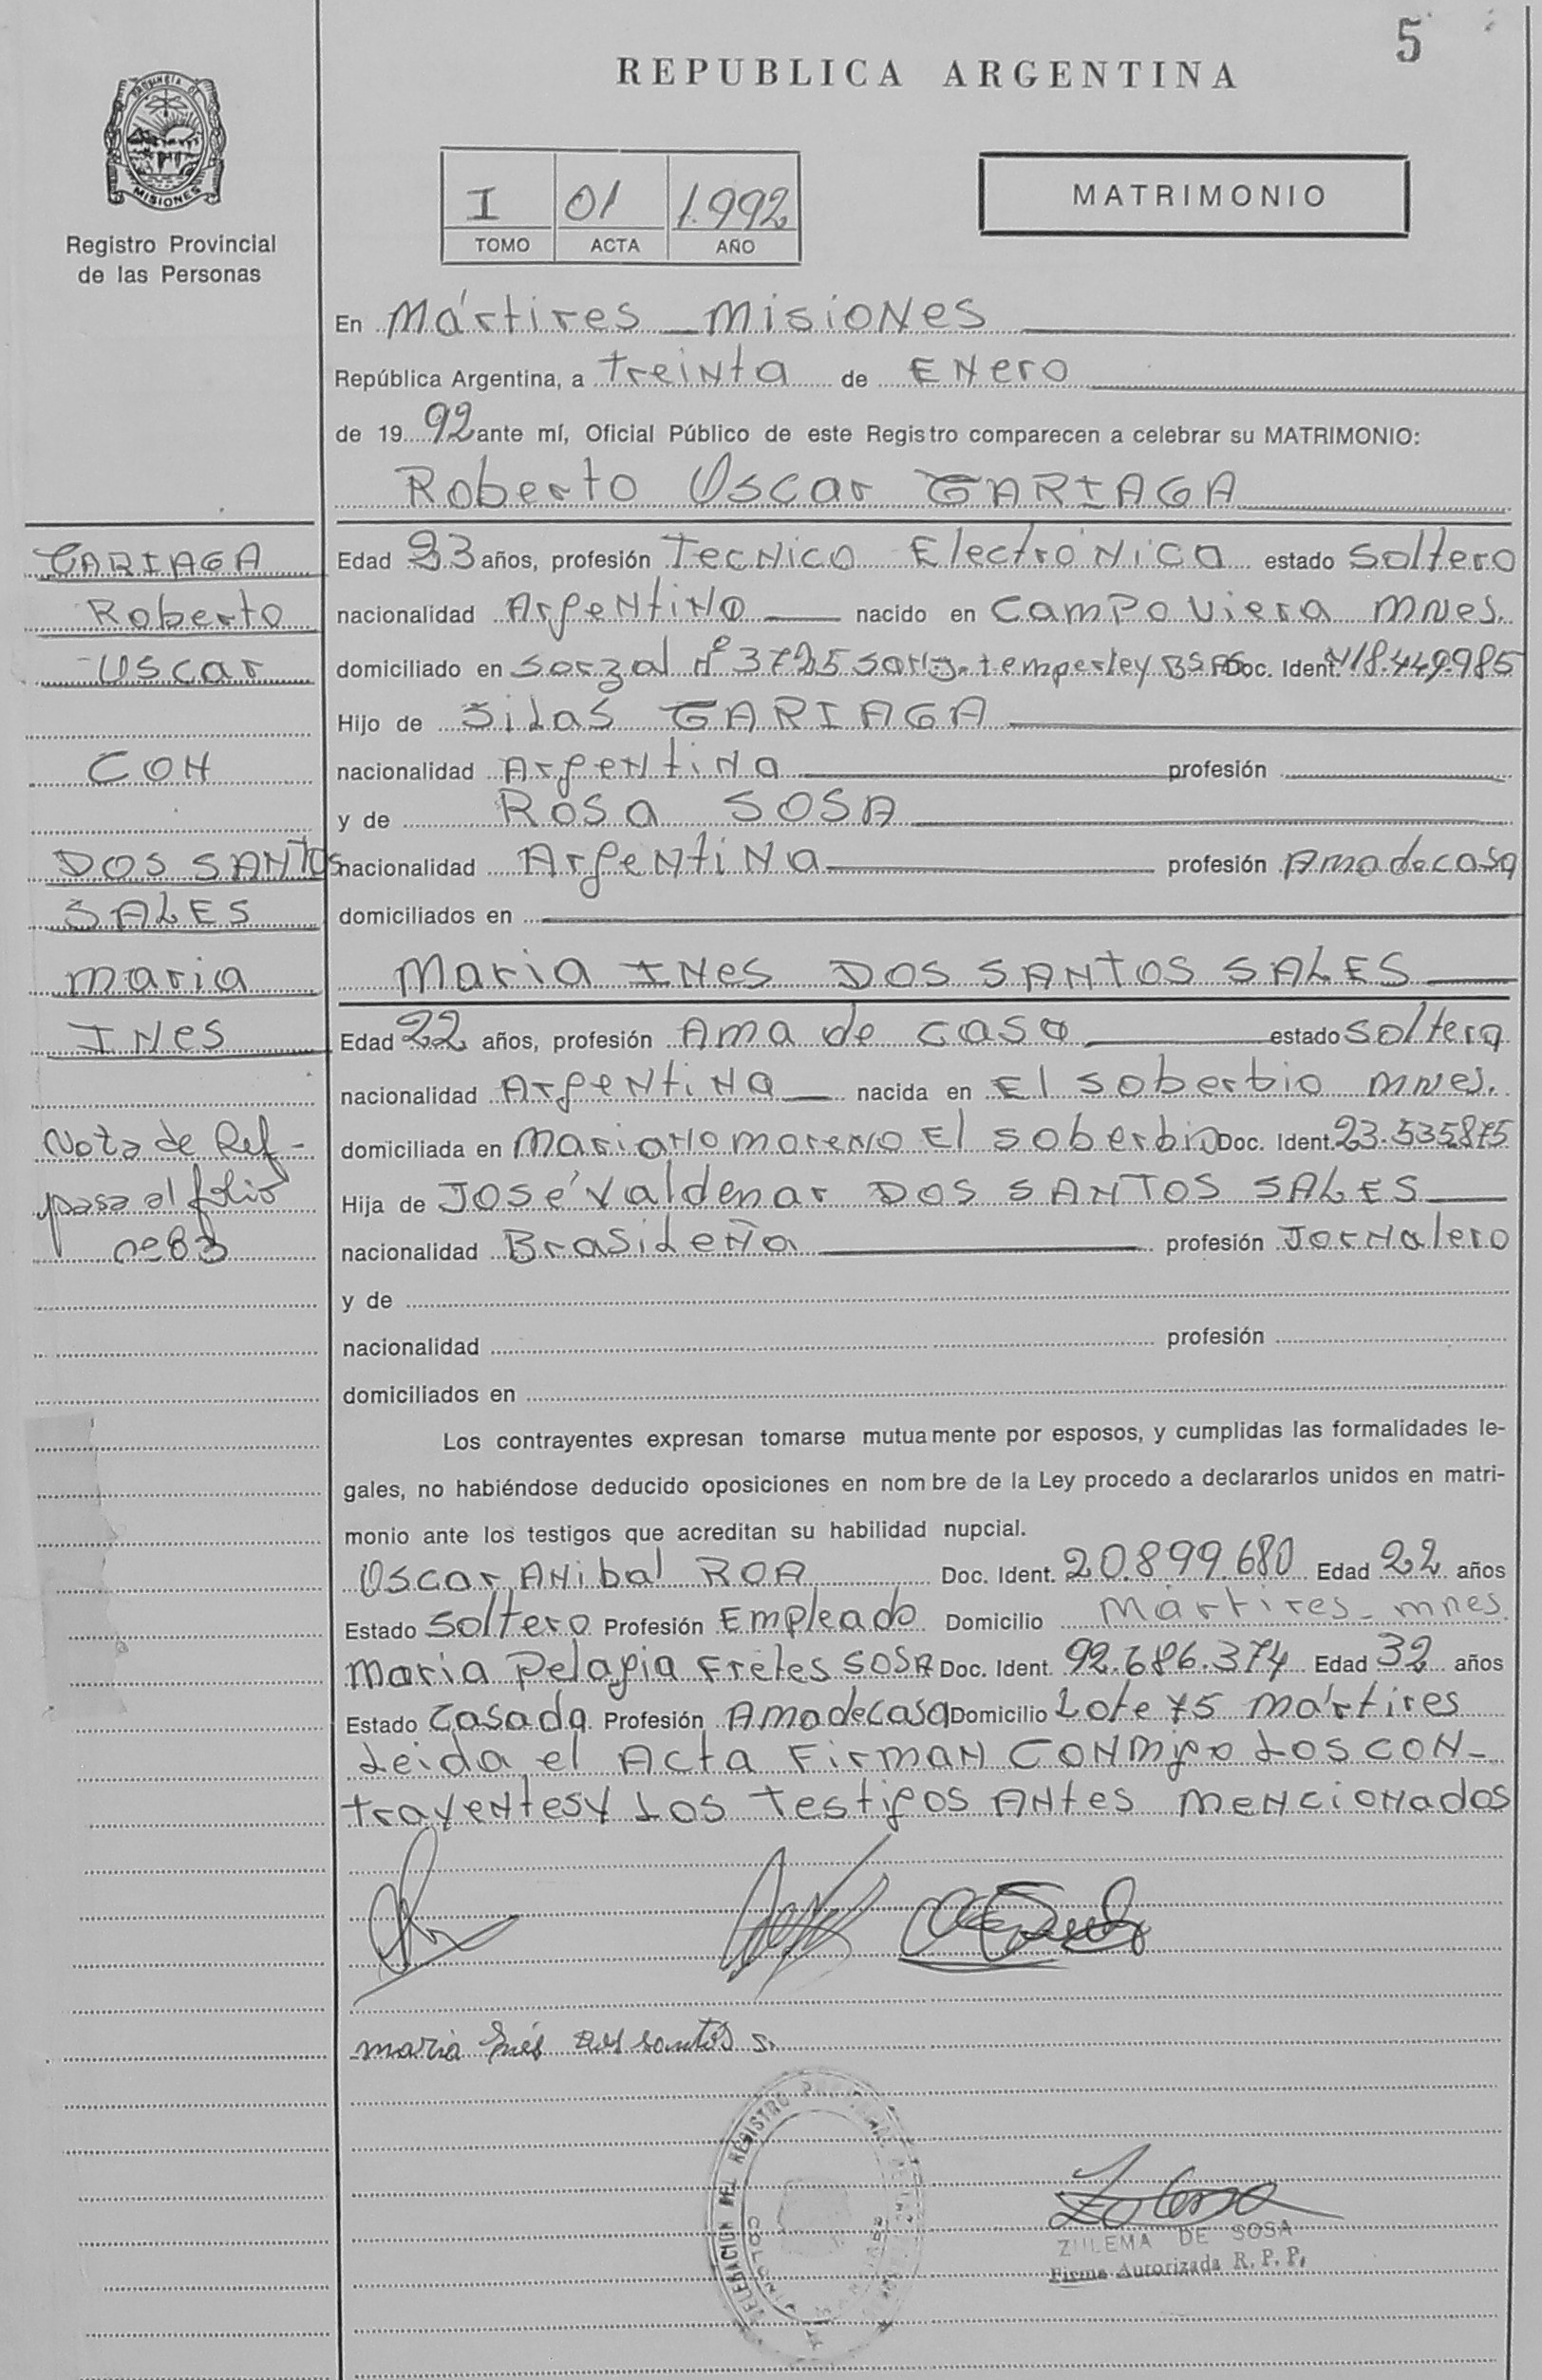 5
REPUBLICA ARGENTINA
PROVINCIA DE
MISIONES
Registro Provincial
de las Personas
I 01 1.992
TOMO ACTA AÑO
MATRIMONIO
En Mártires _ Misiones
República Argentina, a treinta de Enero
de 19 92 ante mí, Oficial Público de este Registro comparecen a celebrar su MATRIMONIO:
Roberto Oscar GARIAGA
GARIAGA
Roberto
Oscar
CON
DOS SANTOS
SALES
Maria
INes
Nota de Ref-
pasa al folio
nº 83
Edad 23 años, profesión Tecnico Electrónico estado soltero
nacionalidad Argentino nacido en Campo Viera Mnes.
domiciliado en Sorzal nº 3725 temperley Bs As Doc. Ident. 18.449.985
Hijo de Silas GARIAGA
nacionalidad Argentina profesión
y de Rosa SOSA
nacionalidad Argentina profesión Ama de casa
domiciliados en
Maria INes DOS SANTOS SALES
Edad 22 años, profesión Ama de casa estado soltera
nacionalidad Argentina nacida en El soberbio Mnes.
domiciliada en Mariano moreno El soberbio Doc. Ident. 23.535875
Hija de José Valdemar DOS SANTOS SALES
nacionalidad Brasileña profesión Jornalero
y de
nacionalidad profesión
domiciliados en
Los contrayentes expresan tomarse mutuamente por esposos, y cumplidas las formalidades le-
gales, no habiéndose deducido oposiciones en nombre de la Ley procedo a declararlos unidos en matri-
monio ante los testigos que acreditan su habilidad nupcial.
Oscar Anibal ROA Doc. Ident. 20.899.680 Edad 22 años
Estado soltero Profesión Empleado Domicilio Mártires - mnes.
Maria Pelagia Fretes SOSA Doc. Ident. 92.686.374 Edad 32 años
Estado Casada Profesión Ama de casa Domicilio Lote 75 Mártires
Leida el Acta Firman conmigo Los con-
trayentes y Los testigos antes mencionados
maria Inés Dos santos S.
DELEGACION DEL REGISTRO
COLONIA
ZULEMA DE SOSA
Firma Autorizada R. P. P.